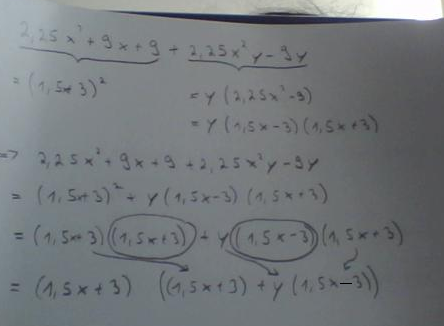 2,25x² + 9x + 9 + 2,25x²y - 9y
= (1,5x+3)²
= y (2,25x² - 9)
= y (1,5x-3) (1,5x+3)
=> 2,25x² + 9x + 9 + 2,25x²y - 9y
= (1,5x+3)² + y (1,5x-3) (1,5x+3)
= (1,5x+3) (1,5x+3) + y (1,5x-3) (1,5x+3)
= (1,5x+3) ((1,5x+3) + y (1,5x-3))